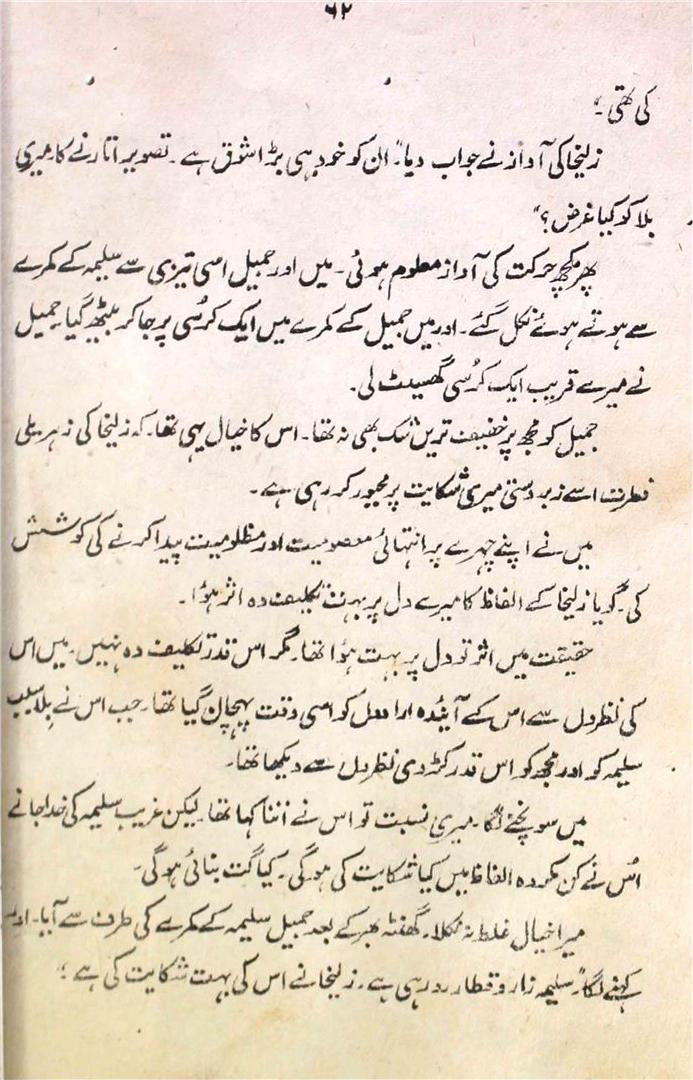 ۶۲
کی تھی۔"
زلیخا کی آواز نے جواب دیا۔ "ان کو خود ہی بڑا شوق ہے۔ تصویر اتارنے کا۔ میری
بلا کو کیا غرض؟"
پھر کچھ حرکت کی آواز معلوم ہوئی۔ میں اور جمیل اسی تیزی سے سلیمہ کے کمرے
سے ہوتے ہوئے نکل گئے۔ اور میں جمیل کے کمرے میں ایک کرُسی پر جا کر بیٹھ گیا۔ جمیل
نے میرے قریب ایک کرُسی گھسیٹ لی۔
جمیل کو مجھ پر خفیف ترین شک بھی نہ تھا۔ اس کا خیال یہی تھا۔ کہ زلیخا کی زہریلی
فطرت اسے زبردستی میری شکایت پر مجبور کر رہی ہے۔
میں نے اپنے چہرے پر انتہائی معصومیت اور مظلومیت پیدا کرنے کی کوشش
کی۔ گویا زلیخا کے الفاظ کا میرے دل پر بہت تکلیف دہ اثر ہوُا۔
حقیقت میں اثر تو دل پر بہت ہوُا تھا۔ مگر اس قدر تکلیف دہ نہیں۔ میں اس
کی نظروں سے اس کے آئندہ ارادوں کو اسی وقت پہچان گیا تھا۔ جب اس نے بلا سبب
سلیمہ کو اور مجھ کو اس قدر کڑوی نظروں سے دیکھا تھا۔
میں سوچنے لگا۔ میری نسبت تو اس نے اتنا کہا تھا۔ لیکن غریب سلیمہ کی خدا جانے
اُس نے کن مکروہ الفاظ میں کیا شکایت کی ہو گی۔ کیا گت بنائی ہو گی۔
میرا خیال غلط نہ نکلا۔ گھنٹہ بھر کے بعد جمیل سلیمہ کے کمرے کی طرف سے آیا۔ اور
کہنے لگا۔ "سلیمہ زار و قطار رو رہی ہے۔ زلیخا نے اس کی بہت شکایت کی ہے؛